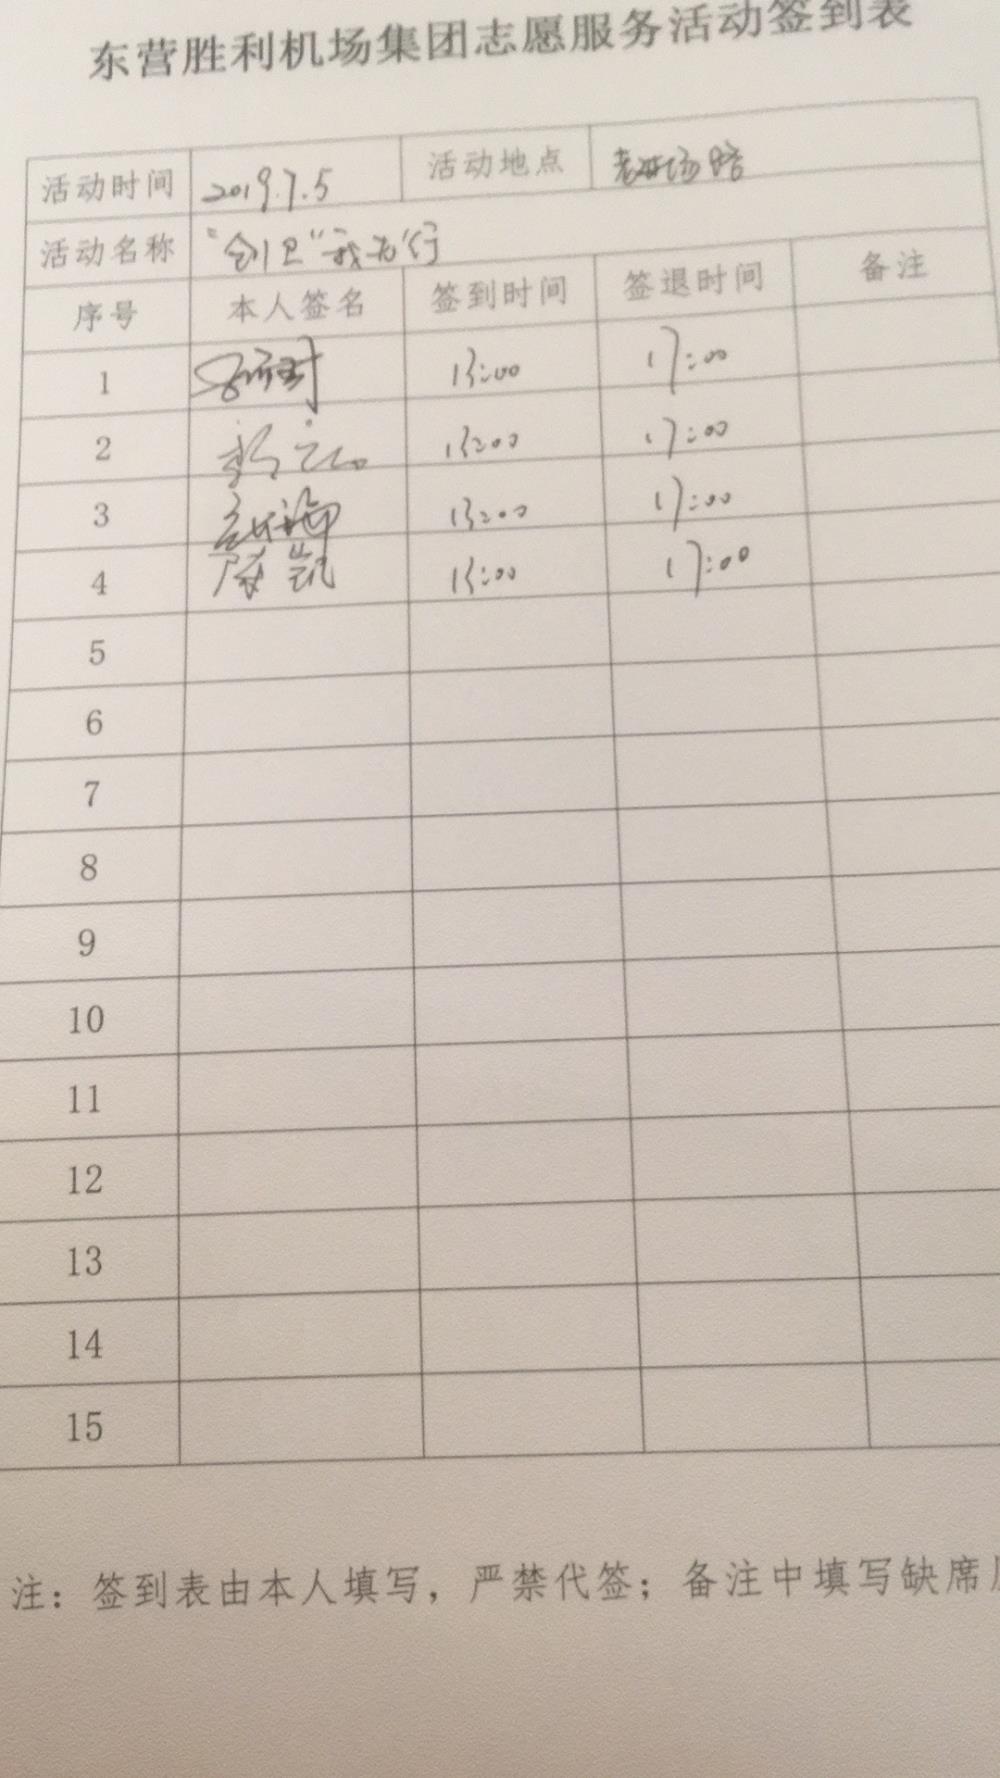 东营胜利机场集团志愿服务活动签到表
活动时间 2019.7.5 活动地点 老机场路
活动名称 "创卫"我先行
序号 本人签名 签到时间 签退时间 备注
1 13:00 17:00
2 13:00 17:00
3 13:00 17:00
4 凯 13:00 17:00
5
6
7
8
9
10
11
12
13
14
15
注：签到表由本人填写，严禁代签；备注中填写缺席